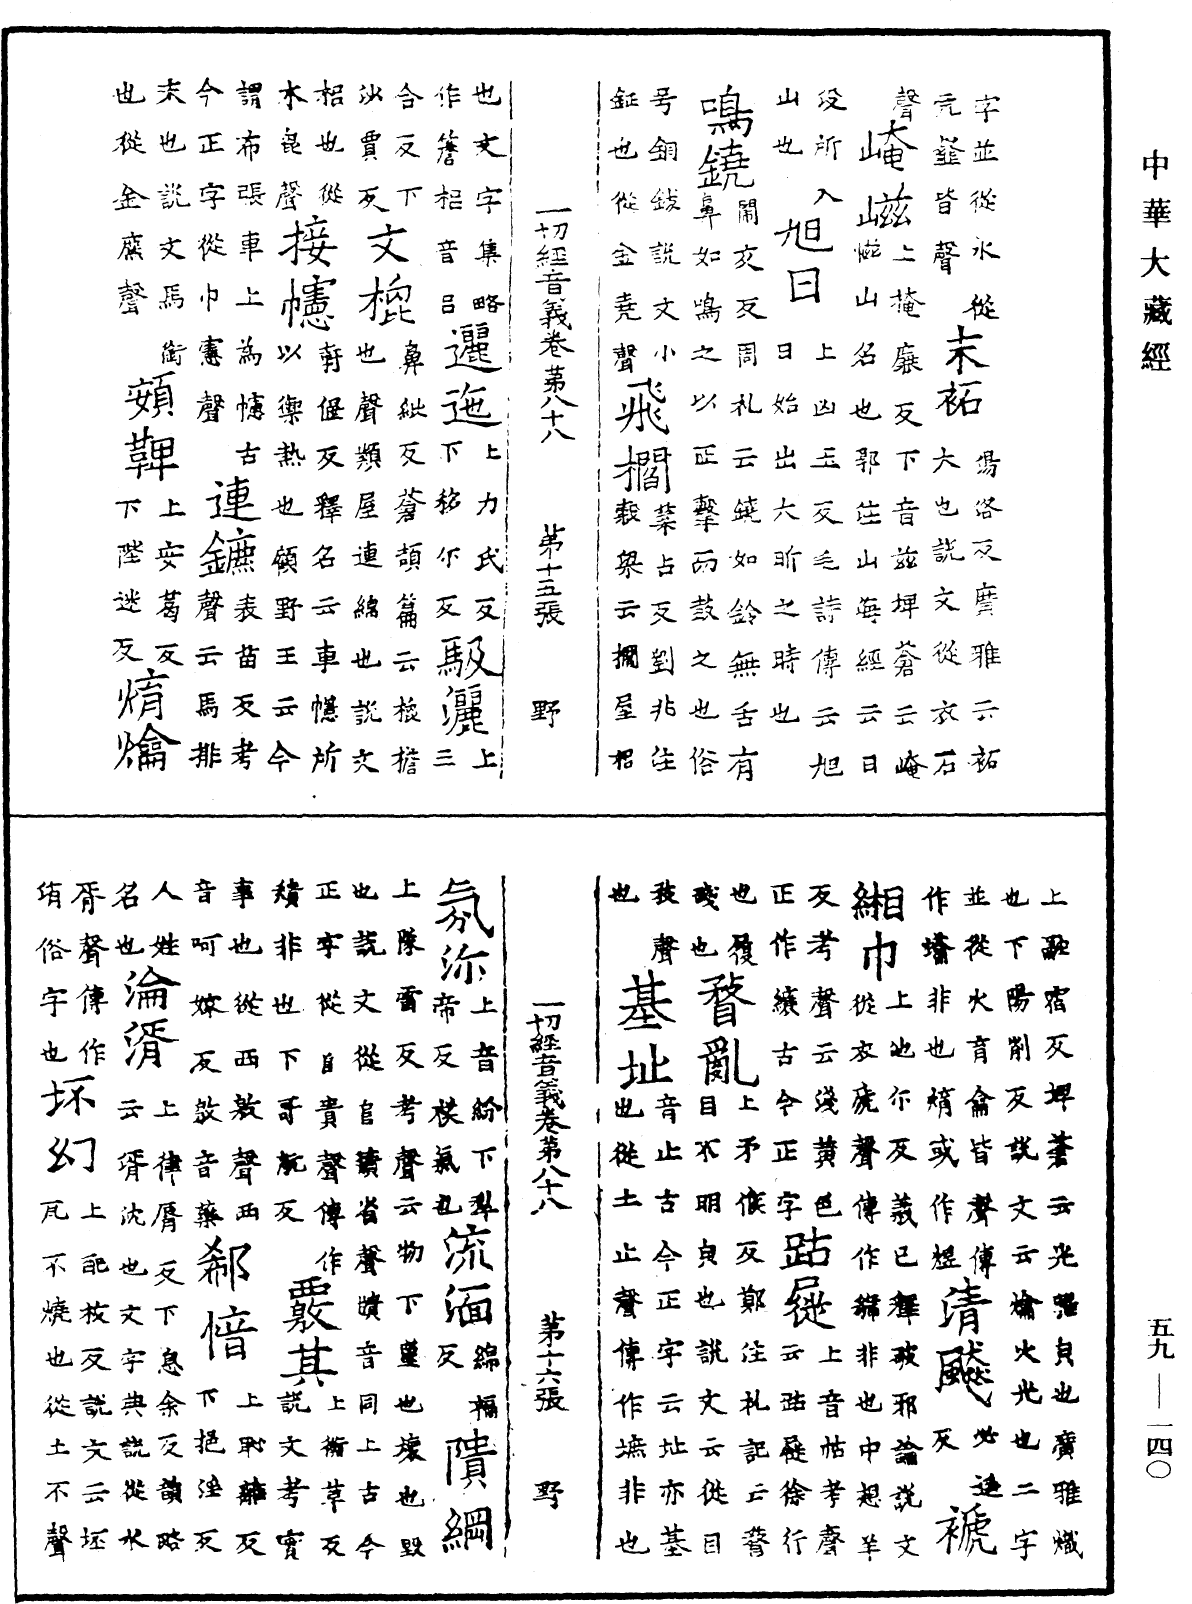 中華大藏經
字並從水從
元𨤲皆聲
末袥 湯洛反廣雅云袥
大也說文從衣石
聲
崦嵫 上掩廉反下音茲埤蒼云崦
嵫山名也郭注山海經云日
沒所入
山也
旭日 上凶玉反毛詩傳云旭
日始出大昕之時也
鳴鐃 鬧交反周礼云鐃如鈴無舌有
鼻如鳴之以正擊而鼓之也俗
号銅鈸說文小
鉦也從金堯聲
飛櫩 葉占反劉兆注
榖梁云櫩屋梠
一切經音義卷第八十八 第十五張 野
也文字集略
作簷梠音呂
邐迤 上力氏反
下移尓反
馺灑 上
三
合反下
沙賈反
文㮰 鼻紕反蒼頡篇云榱檐
也聲類屋連綿也說文
梠也從
木㲋聲
接幰 軒偃反釋名云車幰所
以禦熱也顧野王云今
謂布張車上為幰古
今正字從巾憲聲
連鑣 表苗反考
聲云馬排
末也說文馬銜
也從金麃聲
頞鞞 上安葛反
下陛迷反
焴爚
上融宿反埤蒼云光照皃也廣雅熾
也下陽削反說文云爚火光也二字
並從火育龠皆聲傳
作㷋非也焴或作煜
清飇 必遙
反
褫
緗巾 上池尓反義已釋破邪論說文
從衣虒聲傳作褫非也中想羊
反考聲云淺黃色
正作纕古今正字
跕屣 上音帖考聲
云跕屣徐行
也履
殘也
瞀亂 上矛候反鄭注礼記云瞀
目不明皃也說文云從目
敄聲
也
基址 音止古今正字云址亦基
也從土止聲傳作墌非也
一切經音義卷第八十八 第十六張 野
氛沴 上音紛下犁
帝反祲氣也
流湎 綿褊
反
隤綱
上隊雷反考聲云物下墜也壞也毀
也說文從𨸏貴省聲隤音同上古今
正字從自貴聲傳作
穨非也下哥航反
覈其 上衡革反
說文考實
事也從襾敫聲襾
音呵嫁反敫音藥
郗愔 上恥離反
下挹淫反
人姓
名也
淪湑 上律脣反下息余反韻略
云湑沈也文字典說從水
胥聲傳作
俗字也
坏幻 上配枚反說文云坯
瓦不燒也從土不聲
五九—一四〇